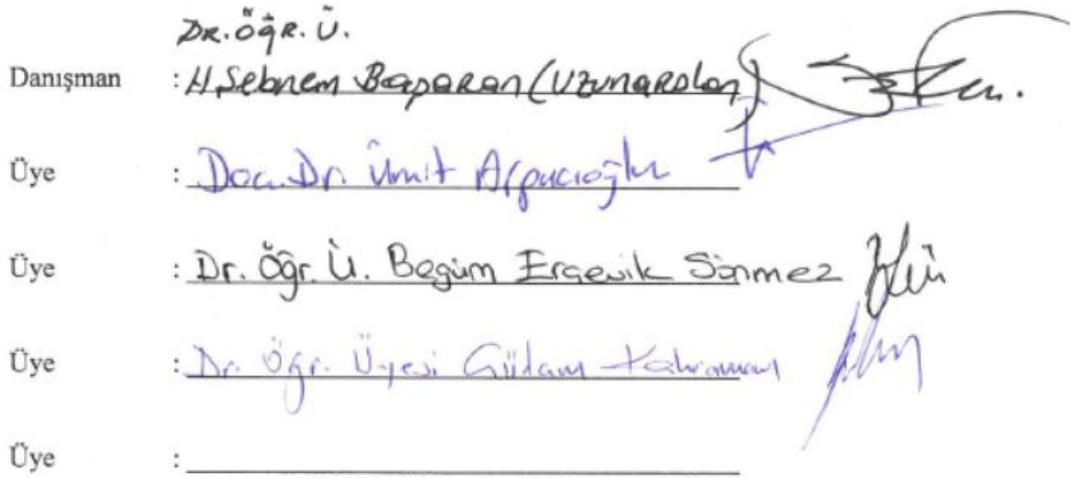 Dr. Öğr. Ü.
Danışman : H. Şebnem Başaran (Uzunarslan)
Üye : Doç. Dr. Ümit Arpacıoğlu
Üye : Dr. Öğr. Ü. Begüm Erçevik Sönmez
Üye : Dr. Öğr. Üyesi Kahraman
Üye :